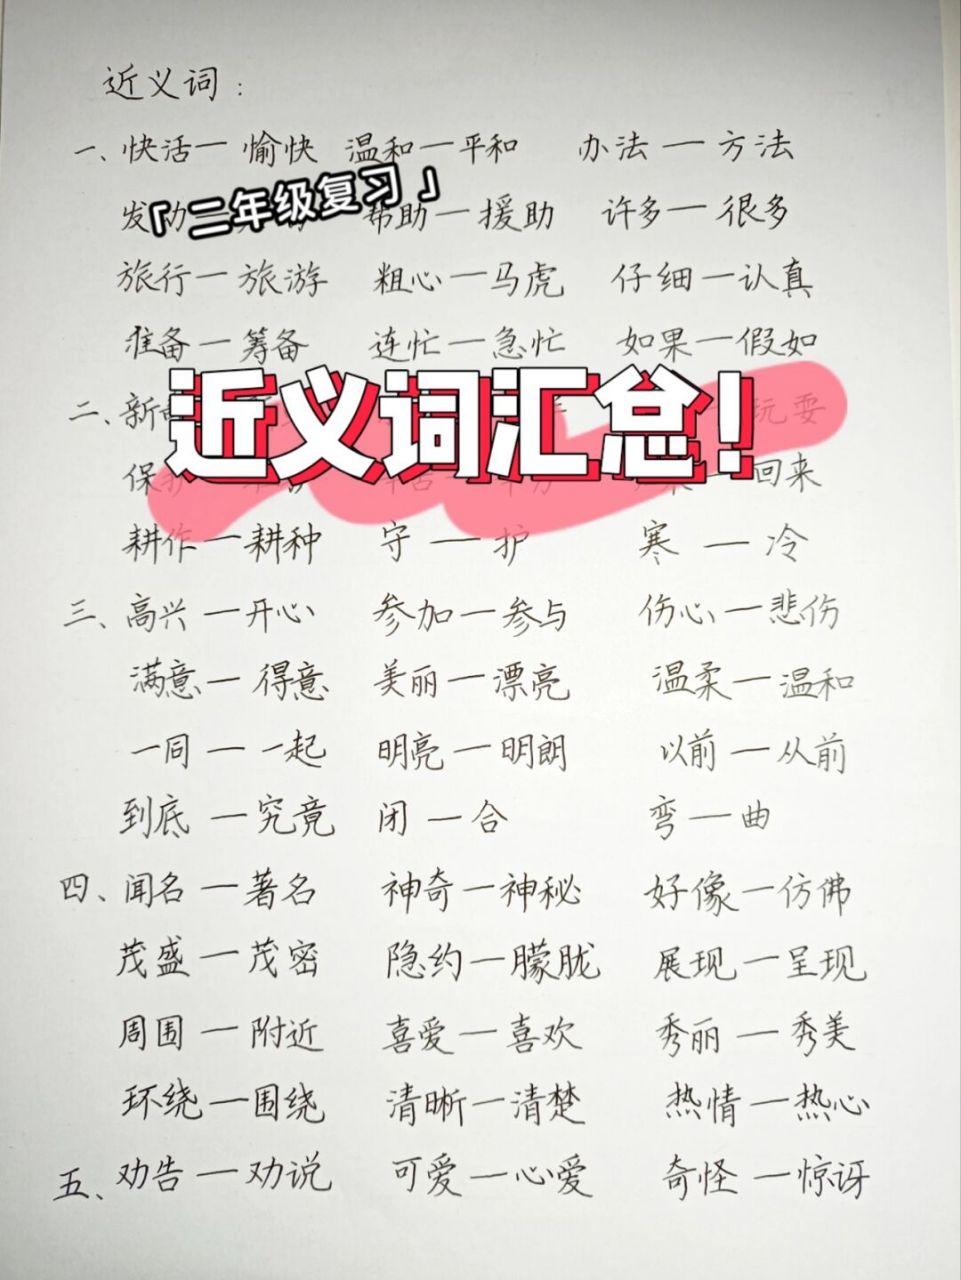 近义词：
一、快活一愉快 温和一平和 办法一方法
「二年级复习」
帮助一援助 许多一很多
旅行一旅游 粗心一马虎 仔细一认真
准备一筹备 连忙一急忙 如果一假如
近义词汇总！
二、新 玩耍
保护 辛苦 回来
耕作一耕种 守一护 寒一冷
三、高兴一开心 参加一参与 伤心一悲伤
满意一得意 美丽一漂亮 温柔一温和
一同一一起 明亮一明朗 以前一从前
到底一究竟 闭一合 弯一曲
四、闻名一著名 神奇一神秘 好像一仿佛
茂盛一茂密 隐约一朦胧 展现一呈现
周围一附近 喜爱一喜欢 秀丽一秀美
环绕一围绕 清晰一清楚 热情一热心
五、劝告一劝说 可爱一心爱 奇怪一惊讶